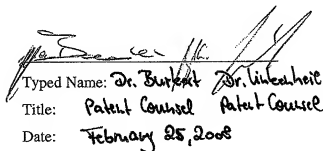 Typed Name: Dr. Burkert Dr. Linkenheil
Title: Patent Counsel Patent Counsel
Date: February 25, 2008